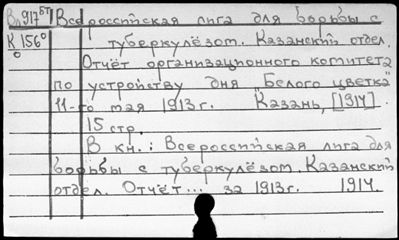 Вл917БТ Всероссийская лига для борьбы с
К 156⁰ туберкулёзом. Казанский отдел.
Отчёт организационного комитета
по устройству дня "Белого цветка"
11-го мая 1913 г. Казань, [1914].
15 стр.
В кн.: Всероссийская лига для
борьбы с туберкулёзом. Казанский
отдел. Отчёт... за 1913 г. 1914.